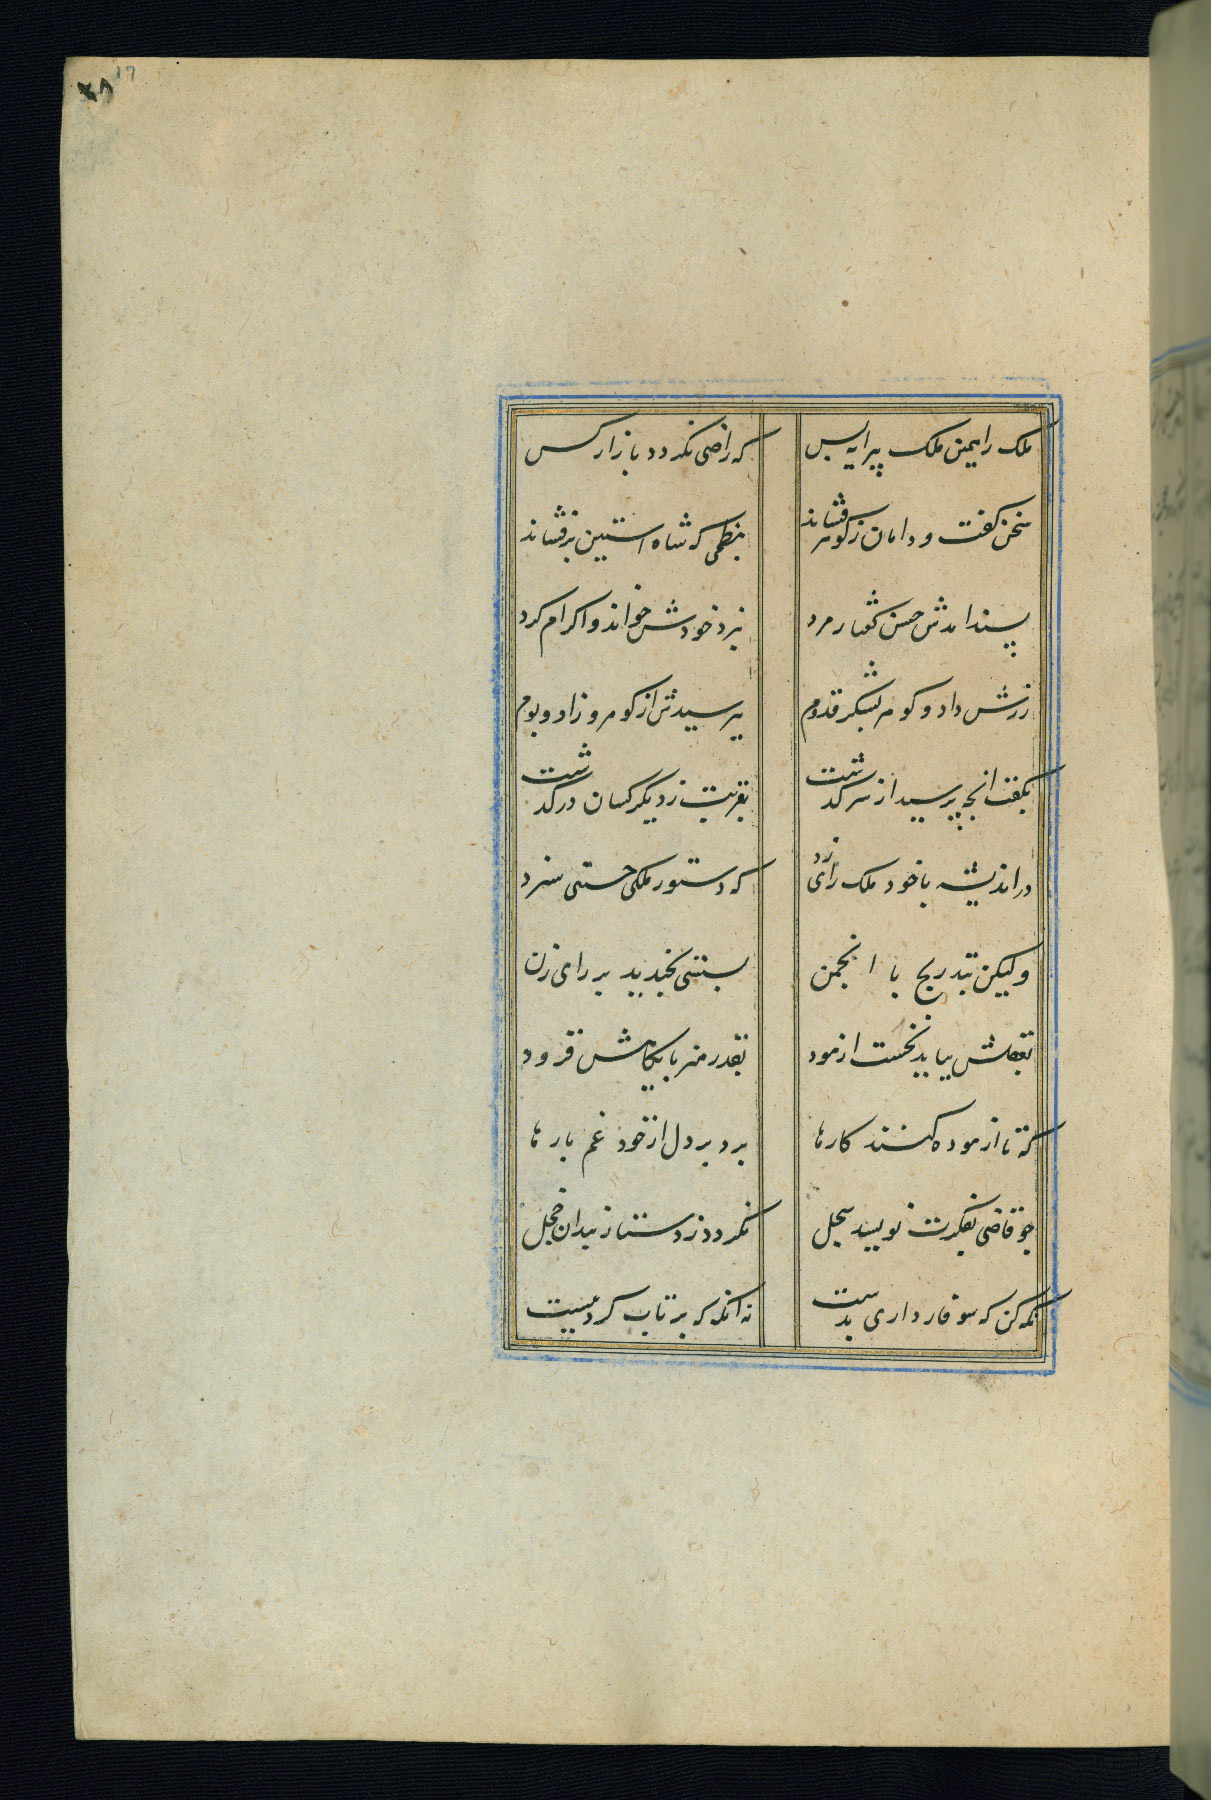 ملک را همین ملک پیرایه بس که راضی نکردد بازار کس
سخن کفت و دامان زکوهر فشاند بنطمی که شاه استین برفشاند
پسند امدش حسن کفتار مرد بنزد خودش خواند و اکرام کرد
زرش داد و کوهر بشکر قدوم بپرسیدش از کوهر و زاد و بوم
بکفت انچه پرسید از سرکذشت بقربت زدیکر کسان درکذشت
در اندیشه با خود ملک رای زد که دستور ملکی چنین سزد
ولیکن بتدریج با انجمن بسستی نخندید بر رای زن
بعقلش بباید نخست ازمود بقدر هنر بایکاهش فزود
که نا ازموده کنند کارها برد بر دل از خود غم بارها
چو قاضی بفکرت نویسد سجل نکردد زدستاربندان خجل
نکه کن که سوفار داری بدست نه انکه که برتاب کردی بشست